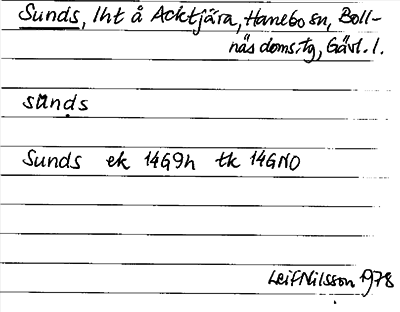 Sunds, lht å Acktjära, Hanebo sn, Boll-
näs doms.tg, Gävl. l.
sunds
Sunds ek 14G9h tk 14GNO
Leif Nilsson 1978